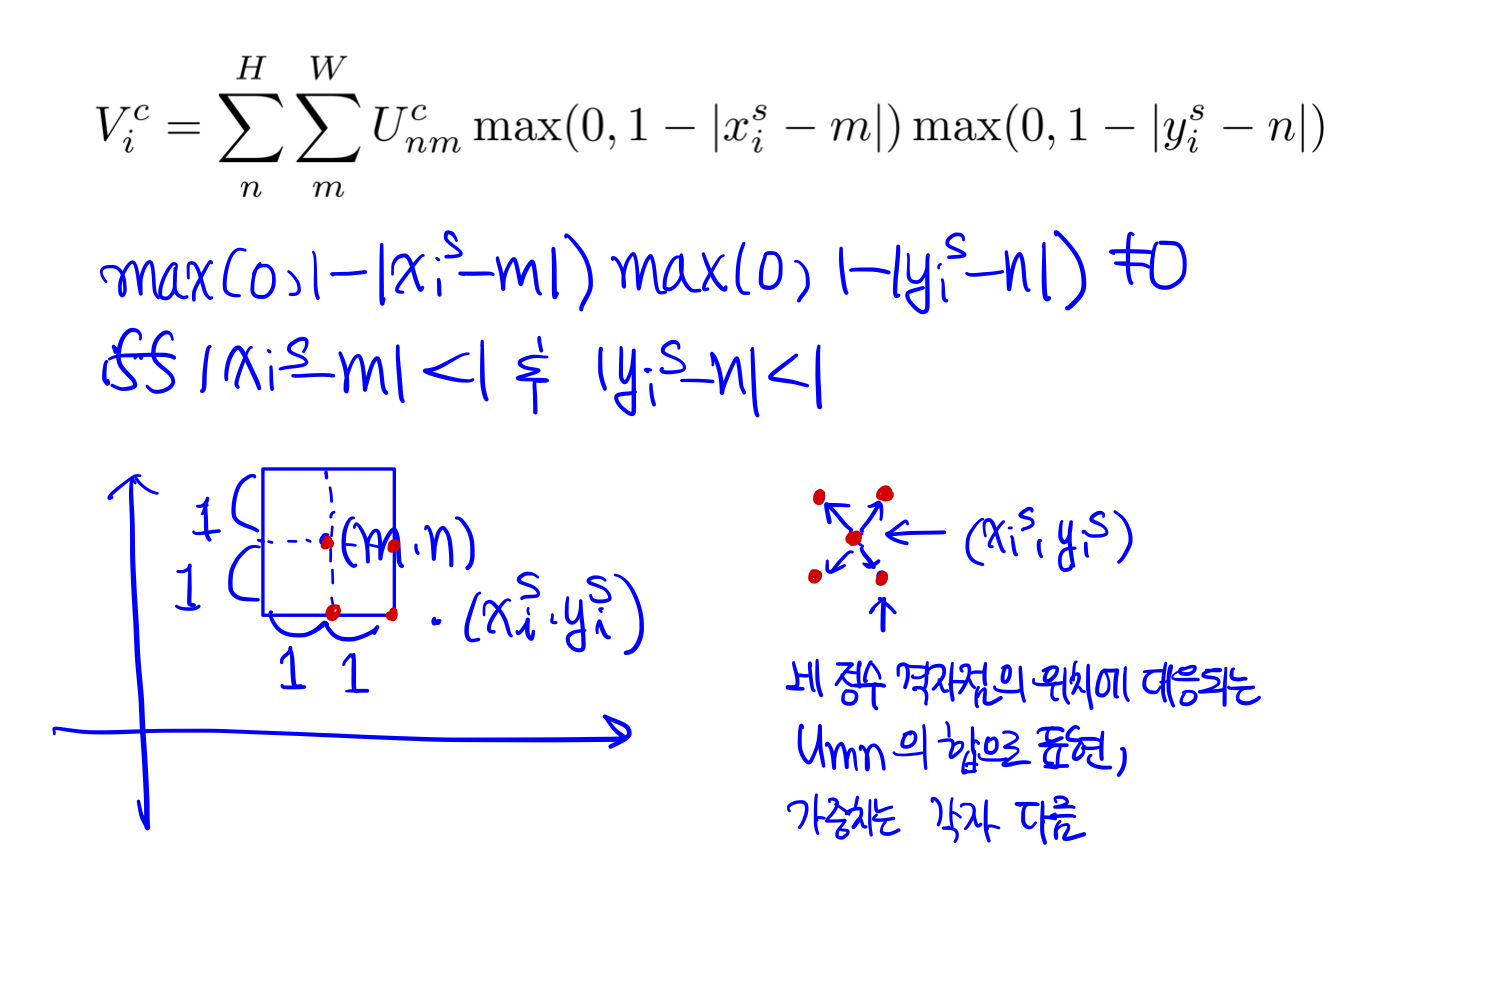 V_i^c = \sum_n^H \sum_m^W U_{nm}^c max(0, 1 − |x_i^s − m|) max(0, 1 − |y_i^s − n|)
max(0, 1−|x_i^s−m|) max(0, 1−|y_i^s−n|) ≠0
iff |x_i^s−m| <1 & |y_i^s−n|<1
1
(m,n)
1
(x_i^s, y_i^s)
1 1
(x_i^s, y_i^s)
네 정수 격자점의 위치에 대응되는
Umn의 합으로 표현,
가중치는 각자 다름